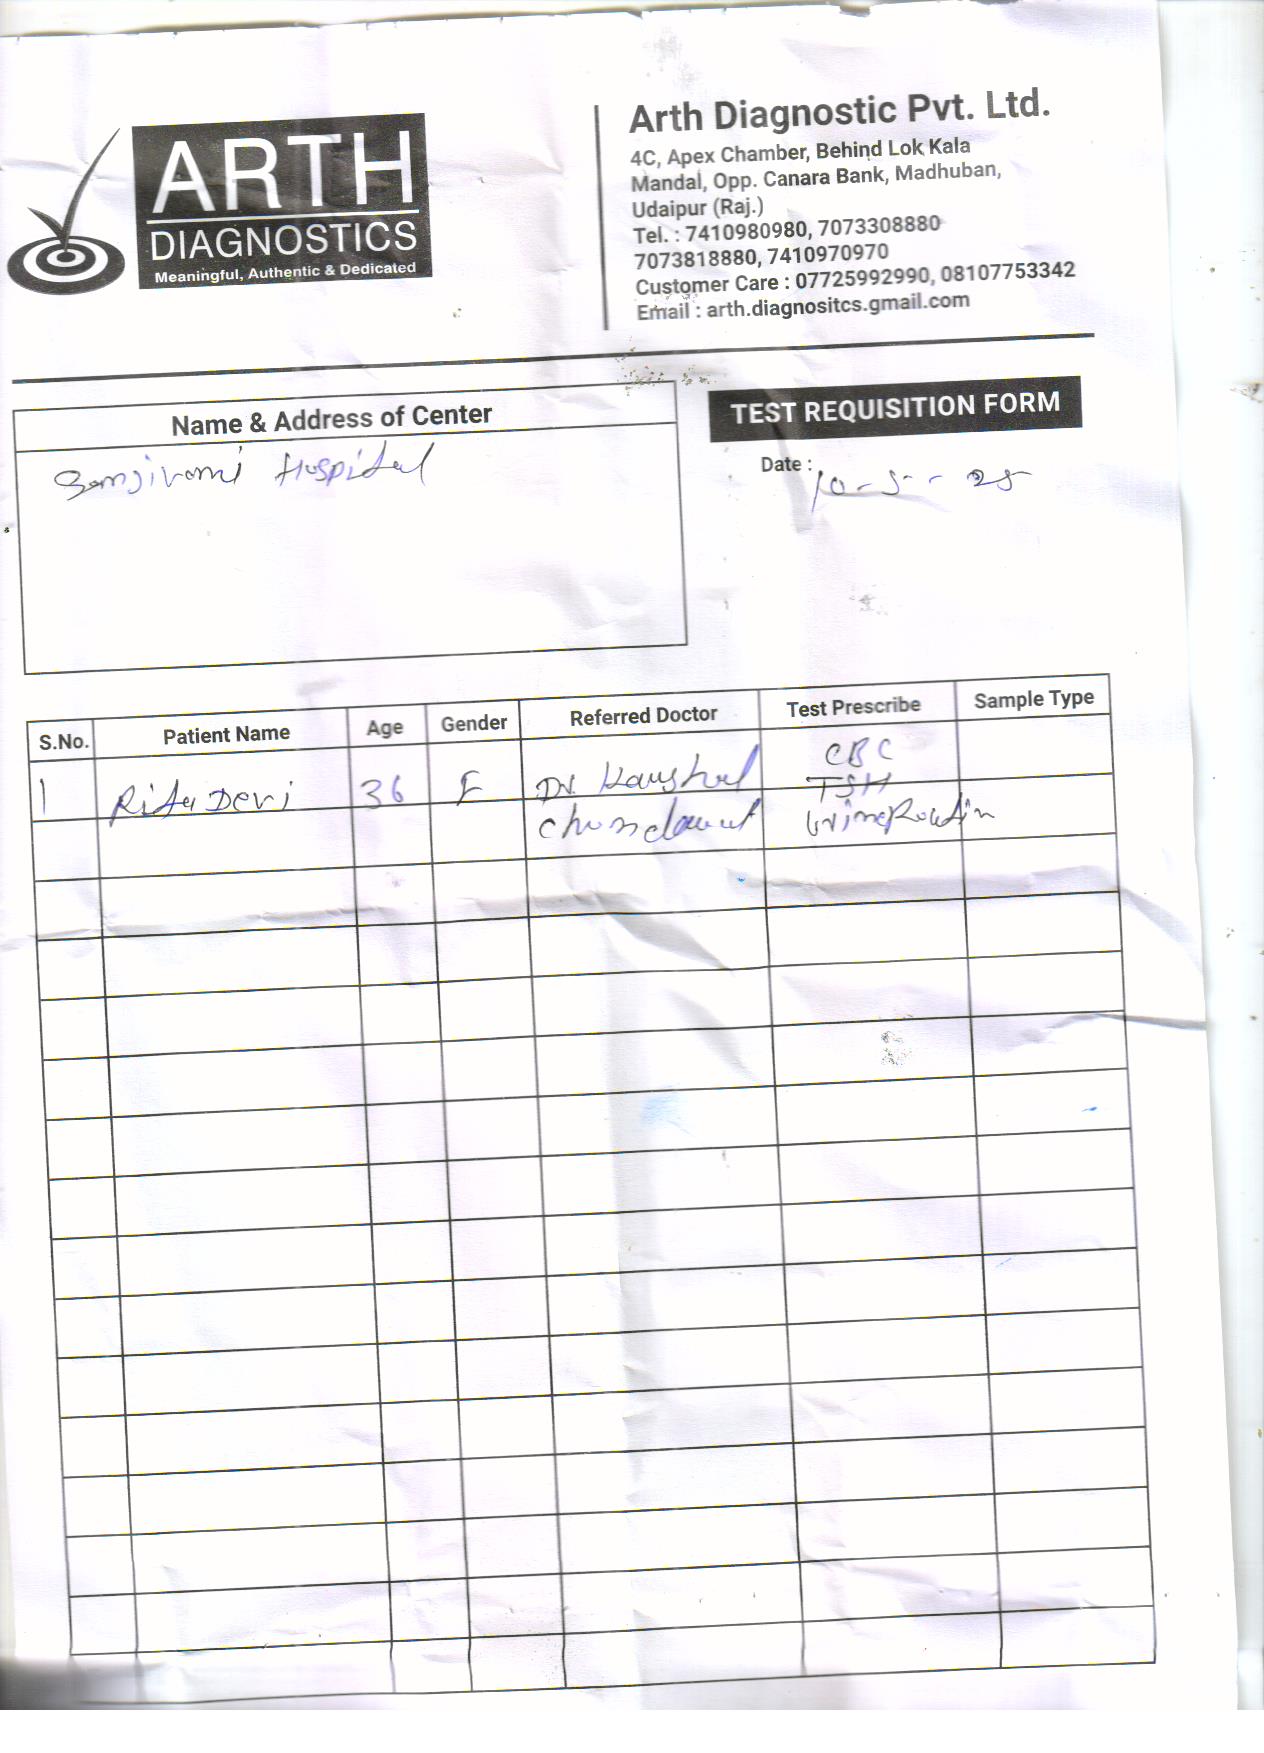 ARTH
DIAGNOSTICS
Meaningful, Authentic & Dedicated
Arth Diagnostic Pvt. Ltd.
4C, Apex Chamber, Behind Lok Kala
Mandal, Opp. Canara Bank, Madhuban,
Udaipur (Raj.)
Tel. : 7410980980, 7073308880
7073818880, 7410970970
Customer Care : 07725992990, 08107753342
Email : arth.diagnositcs.gmail.com
Name & Address of Center
Sanjivani Hospital
TEST REQUISITION FORM
Date : 10-5-25
S.No. Patient Name Age Gender Referred Doctor Test Prescribe Sample Type
1 Rita Devi 36 F Dr. Kaushal CBC
TSH
Chundawat Urine Routin